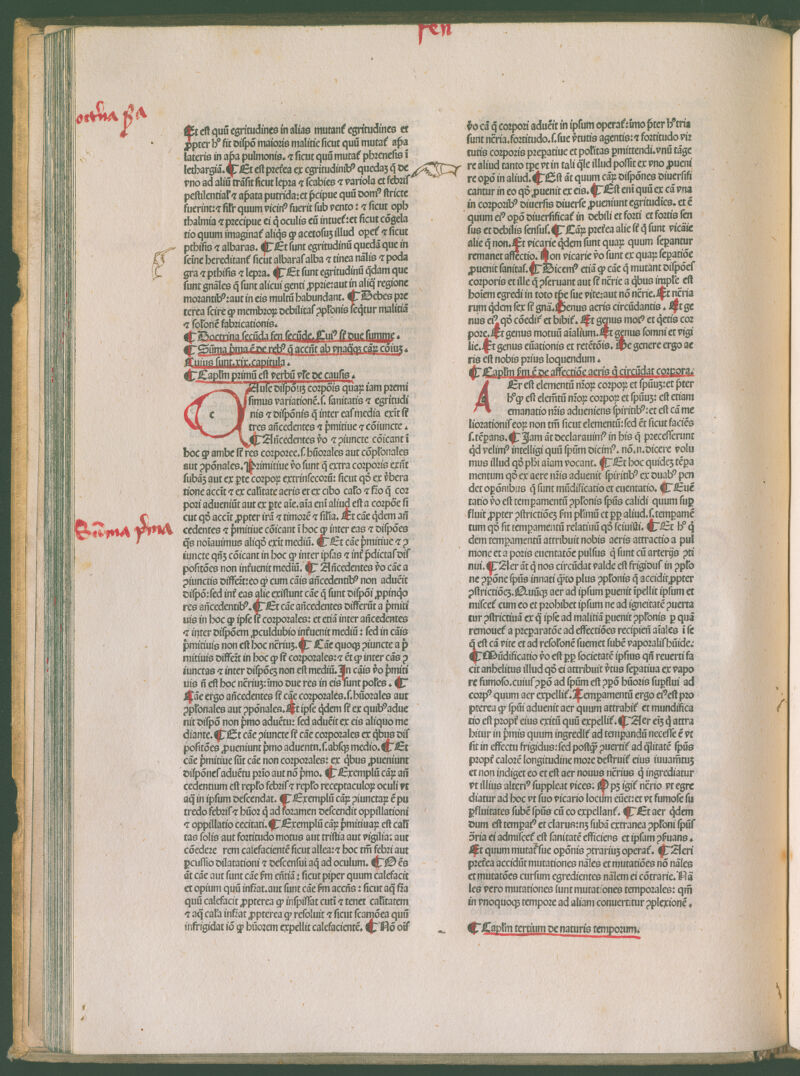 fen
Et est quũ egritudines in alias mutanť egritudines et
ꝓpter hͦ fit dispõ maioris malitie sicut quũ mutať apͣa
lateris in apͣa pulmonis. ⁊ sicut quũ mutať phrenesis ĩ
lethargiã. ¶ Et est preťea ex egritudinibꝰ quedaʒ q̃ de
vno ad aliũ trãsit sicut lepra ⁊ scabies ⁊ variola et febris
pestilentialꝭ ⁊ apͣata putrida: et p̃cipue quũ domꝰ stricte
fuerint: ⁊ silꝰr quum vicinꝰ fuerit sub vento: ⁊ sicut oph
thalmia ⁊ precipue ei q̃ oculis eũ intueť: et sicut cõgela
tio quum imaginať aliqͥs ꝙ acetosuʒ illud opeť ⁊ sicut
pthisis ⁊ albaras. ¶ Et sunt egritudinũ quedã que in
seĩne hereditanť sicut albaras alba ⁊ tinea nãlis ⁊ poda
gra ⁊ pthisis ⁊ lepra. ¶ Et sunt egritudinũ q̃dam que
sunt gñales q̃ sunt alicui genti ꝓprie: aut in aliq̃ regione
morantibꝰ: aut in eis multũ habundant. ¶ Debes pre
terea scire ꝙ membroꝝ debilitas ꝯplonis seq̃tur malitiã
⁊ solonẽ fabricationis.
¶ Doctrina secũda fen secũde. Cuiꝰ sť due summe.
¶ Sũma p̃ma ẽ de rebꝰ q̃ accñt ab vnaq̃qʒ caꝝ cõiuʒ.
Cuius sunt .xix. capitula.
¶ Caplm̃ primũ est verbũ vľe de causis.
Ause dispõnis corpõis quaꝝ iam premi
simus variationẽ .s. sanitatis ⁊ egritudi
nis ⁊ dispõnis q̃ inter eas media exñt sť
tres añcedentes ⁊ p̃mitiue ⁊ cõiuncte.
¶ Añcedentes ṽo ⁊ ꝯiuncte cõicant ĩ
hoc ꝙ ambe sť res corporee .s. hũorales aut cõplonales
aut ꝯponãles. Primitiue ṽo sunt q̃ extra corporis exñt
subãʒ aut ex pte corpoꝝ extrinsecoꝝ: sicut qď ex v̾bera
tione accñt ⁊ ex calitate aeris et ex cibo caľo ⁊ fͥo q̃ cor
pori adueniũt aut ex pte aĩe. aĩa eni aliud est a corpõe si
cut qď accñt ꝓpter irã ⁊ timorẽ ⁊ silĩa. Et cãe q̃dem añ
cedentes ⁊ p̃mitiue cõicant ĩ hoc ꝙ inter eas ⁊ dispões
q̃s noĩauimus aliqñ exit mediũ. ¶ Et cãe p̃mitiue ⁊ ꝯ
iuncte qñqʒ cõicant in hoc ꝙ inter ipsas ⁊ inť p̃dictas dis
positões non inťuenit mediũ. ¶ Añcedentes ṽo cãe a
ꝯiunctis differũt: eo ꝙ cum cãis añcedentibꝰ non aduẽit
dispõ: sed inť eas alie existunt cãe q̃ sunt dispõi ꝓpinqͦ
res añcedentibꝰ. ¶ Et cãe añcedentes differũt a p̃miti
uis in hoc ꝙ ipse sť corporales: et etiã inter añcedentes
⁊ inter dispõem ꝓculdubio inťuenit mediũ: sed in cãis
p̃mitiuis non est hoc nc̃riuʒ. ¶ Cãe quoqʒ ꝯiuncte a p̃
mitiuis differt̃ in hoc ꝙ sť corporales: ⁊ ẽt ꝙ inter cãs ꝯ
iunctas ⁊ inter dispõeʒ non est mediũ. In cãis ṽo p̃miti
uis ñ est hoc nc̃riuʒ: imo due res in eis sunt poľes. ¶
Cãe ergo añcedentes sť cãe corporales .s. hũorales aut
ꝯplonales aut ꝯponales. Et ipse q̃dem sť ex quibꝰ adue
nit dispõ non p̃mo aduẽtu: sed aduẽit ex eis aliquo me
diante. ¶ Et cãe ꝯiuncte sť cãe corporales ex q̃bus dis
positões ꝓueniunt p̃mo aduentu .s. absqʒ medio. ¶ Et
cãe p̃mitiue sũt cãe non corporales: ex q̃bus ꝓueniunt
dispões aduẽtu p̃rio aut nõ p̃mo. ¶ Exemplũ caꝝ añ
cedentium est replõ febris ⁊ replõ receptaculoꝝ oculi vt
aq̃ in ipsum descendat. ¶ Exemplũ caꝝ ꝯiunctaꝝ ẽ pu
tredo febris ⁊ hũor q̃ ad foramen descendit oppillationi
⁊ oppillatio cecitati. ¶ Exemplũ caꝝ p̃mitiuaꝝ est cali
tas solis aut fortitudo motus aut tristia aut vigilia: aut
cõedere rem calefacientẽ sicut allea: ⁊ hoc tm̃ febri aut
ꝑcussio dilatationi ⁊ descensui aq̃ ad oculum. ¶ Oẽs
aũt cãe aut sunt cãe ẜm eñtiã: sicut piper quum calefacit
et opium quũ infrigidat. aut sunt cãe ẜm accñs: sicut aq̃ fͥa
quũ calefacit ꝓpterea ꝙ inspissat cutẽ ⁊ tenet calitatem
⁊ aq̃ caľa infͥat ꝓpterea ꝙ resoluit ⁊ sicut scamõea quũ
infrigidat iõ ꝙ hũorem expellit calefacientẽ. ¶ Nõ oĩs
ṽo cã q̃ corpori aduẽit in ipsum operať: imo p̃ter hͦ tria
sunt nc̃ria. fortitudo .s. sue v̾tutis agentis: ⁊ fortitudo vir
tutis corporis preparatiue et positas ꝓmittendi. vnũ tãge
re aliud tanto tpe vt in tali q̃le illud possit ex vno ꝓueni
re opõ in aliud. ¶ Est aũt quum caꝝ dispões diuersifi
cantur in eo qď ꝓuenit ex eis. ¶ Est eni quũ ex cã vna
in corporibꝰ diuersis diuerse ꝓueniunt egritudies. et ẽ
quum eiꝰ opõ diuersificať in debili et forti et fortis sen
sus et debilis sensus. ¶ Caꝝ preťea alie sť q̃ sunt vicãie
alie q̃ non. Et vicarie q̃dem sunt quaꝝ quum sepantur
remanet affectio. Non vicarie ṽo sunt ex quaꝝ sepatiõe
ꝓuenit sanitas. ¶ Dicemꝰ etiã ꝙ cãe q̃ mutant dispões
corporis et ille q̃ ꝯseruant aut sť nc̃rie a q̃bus imposľe est
hoĩem egredi in toto tpe sue vite: aut nõ nc̃rie. Et nc̃ria
rum q̃dem sex sť gñã. Genus aeris circũdantis. Et ge
nus eiꝰ qď cõediť et bibiť. Et genus motꝰ et q̃etis cor
pore. Et genus motuũ aĩalium. Et genus somni et vigi
lie. Et genus eũationis et retẽtõis. De genere ergo ae
ris est nobis prius loquendum.
¶ Caplm̃ ẜm ẽ de affectiõe aeris q̃ circũdat corpora.
Er est elementũ nr̃oꝝ corpoꝝ et sp̃uuʒ: et p̃ter
hͦ ꝙ est elem̃tũ nr̃oꝝ corpoꝝ ⁊ sp̃uuʒ: est etiam
emanatio nr̃is adueniens spiritibꝰ: et est cã me
liorationis eoꝝ non tm̃ sicut elementũ: sed ẽt sicut faciẽs
.s. tẽpans. ¶ Jam aũt declarauimꝰ in his q̃ precesserunt
qͥd velimꝰ intelligi quũ spũm dicimꝰ. nõ .n. dicere volu
mus illud qď phi aĩam vocant. ¶ Et hoc quideʒ tẽpa
mentum qď ex aere nr̃is aduenit spiritibꝰ ex duabꝰ pen
det opõnibus q̃ sunt mũdificatio et euentatio. ¶ Euẽ
tatio ṽo est tempamentũ ꝯplonis spũs calidi quum sup
fluit ꝓpter ꝯstrictiõeʒ ẜm plimũ et pp aliud. s. tempamẽ
tum qď sit tempamentũ relatiuũ qď sciuisti. ¶ Et hͦ q̃
dem tempamentũ attribuit nobis aeris attractio a pul
mone et a poris euentatõe pulsus q̃ sunt cũ arterijs ꝯti
nui. ¶ Aer aũt q̃ nos circũdat valde est frigidus in ꝯplo
ne ꝯpõne spũs innati qͣnto plus ꝯplonis q̃ accidit ꝓpter
ꝯstrictiõeʒ. Quũqʒ aer ad ipsum puenit ĩpellit ipsum et
misceť cum eo et prohibet ipsum ne ad igneitatẽ ꝯuerta
tur ꝯstrictiuã ex q̃ ipse ad malitiã puenit ꝯplonis p quã
remoueť a preparatõe ad effectiões recipieñ aĩales ĩ se
q̃ est cã vite et ad resolonẽ suemet subẽ vaporalis hũide.
¶ Mũdificatio ṽo est pp societatẽ ipsius qñ reuerti fa
cit anhelitus illud qď ei attribuit v̾tus sepatiua ex vapo
re fumoso. cuiusꝰ ꝯpõ ad spũm est ꝯpõ hũoris supflui ad
corpꝰ quum aer expelliť. Tempamentũ ergo eiꝰ est pro
pterea ꝙ spũi aduenit aer quum attrahiť et mundifica
tio est propť eius exitũ quũ expelliť. ¶ Aer eiʒ q̃ attra
hitur in p̃mis quum ingrediť ad tempandũ necesse ẽ vt
sit in effectu frigidus: sed postq̃ʒ ꝯuertiť ad q̃litatẽ spũs
propť calorẽ longitudine more destruiť eius iuuam̃tuʒ
et non indiget eo et est aer nouus nc̃rius q̃ ingrediatur
vt illius alteriꝰ suppleat vices: Oʒ igiť nc̃rio vt egre
diatur ad hoc vt suo vicario locum euẽet: et vt fumose su
perfluitates subẽ spũs cũ eo expellanť. ¶ Et aer q̃dem
dum est tempatꝰ et clarus: ñʒ subã extranea ꝯplõni spũs
ꝯria ei admisceť est sanitatẽ efficiens et ipsam ꝯseruans.
Et quum mutať sue opõnis ꝯtrariuʒ operať. ¶ Aeri
preťea accidũt mutationes nãles et mutatiões nõ nãles
et mutatões cursum egredientes nãlem ei cõtrarie. Nã
les vero mutationes sunt mutationes temporales: qm̃
in vnoquoqʒ tempore ad aliam conuertitur ꝯplexionẽ.
¶ Caplm̃ tertium de naturis temporum.
Suma pͥma